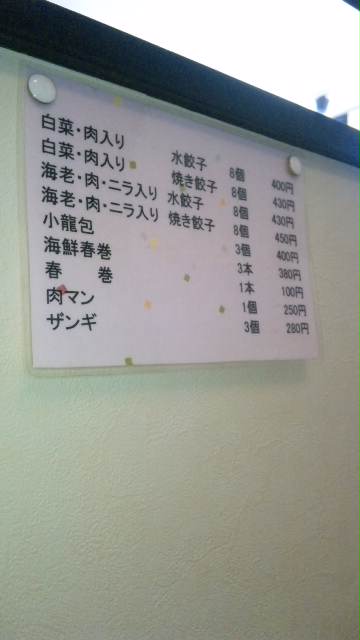 白菜・肉入り 水餃子 8個 400円
白菜・肉入り 焼き餃子 8個 430円
海老・肉・ニラ入り 水餃子 8個 430円
海老・肉・ニラ入り 焼き餃子 8個 450円
小龍包 3個 400円
海鮮春巻 3本 380円
春 巻 1本 100円
肉マン 1個 250円
ザンギ 3個 280円